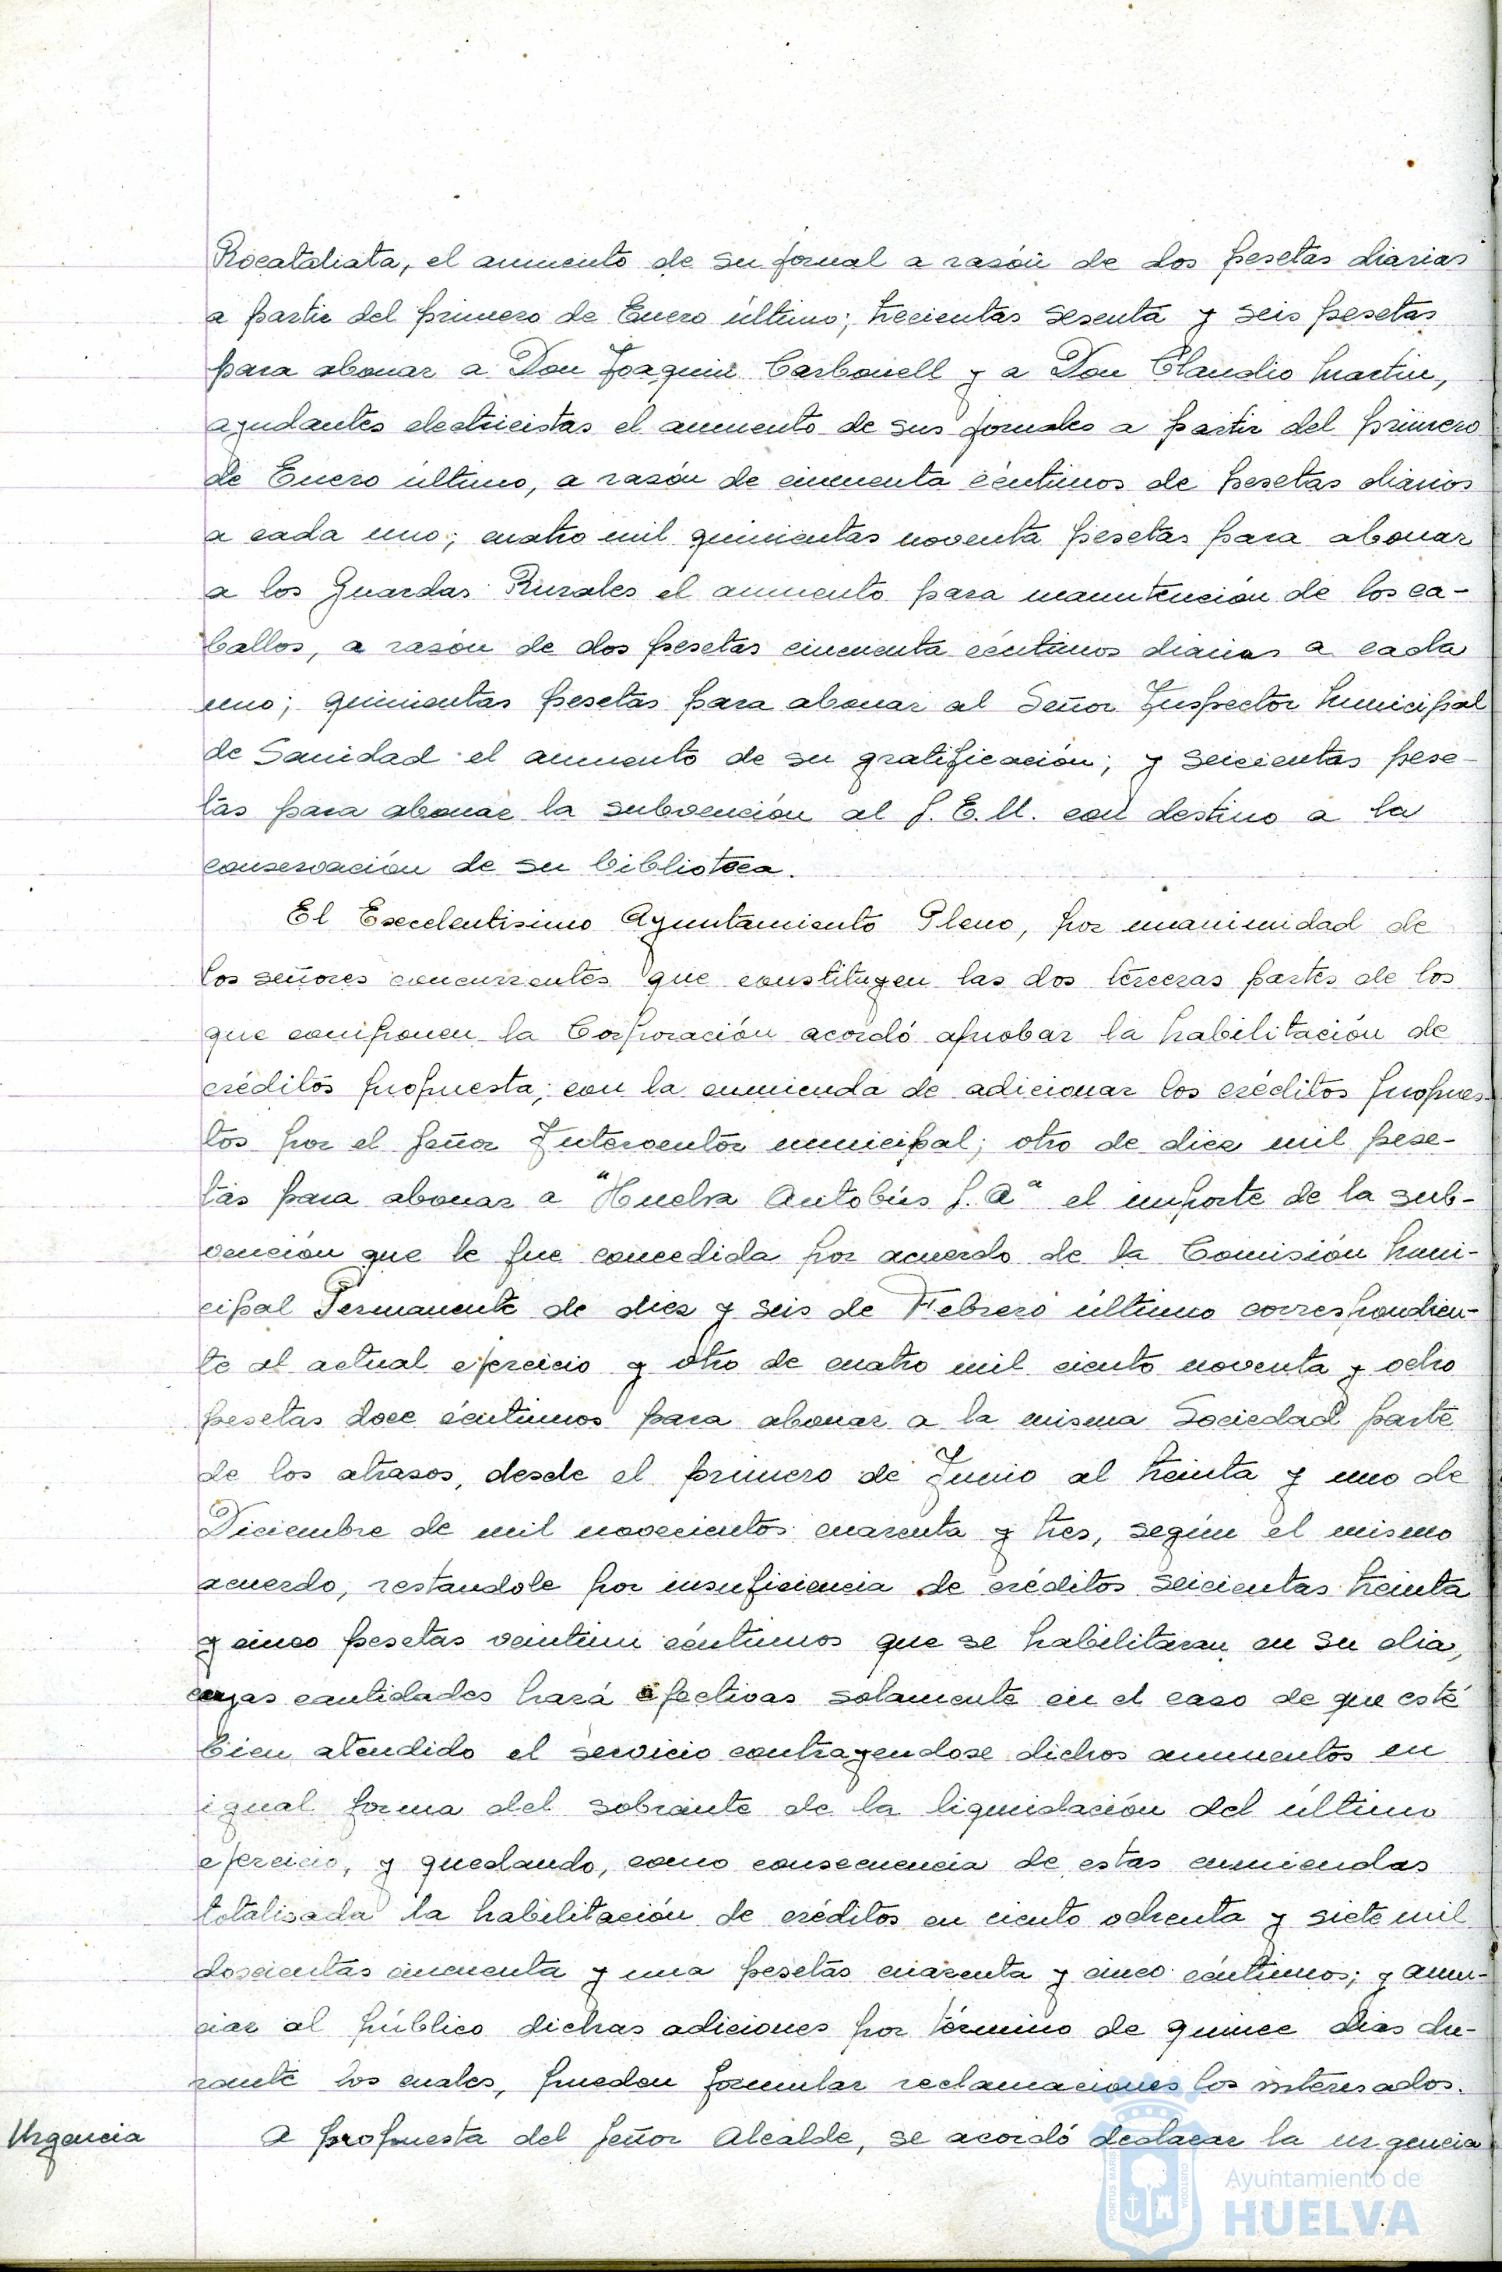 Rocataliata, el aumento de su jornal a rasón de dos pesetas diarias
a partir del primero de Enero último; trecientas sesenta y seis pesetas
para abonar a Don Joaquin Carbonell y a Don Claudio Martin,
ayudantes electricistas el aumento de sus jornales a partir del primero
de Enero último, a rasón de cincuenta céntimos de pesetas diarios
a cada uno; cuatro mil quinientas noventa pesetas para abonar
a los Guardas Rurales el aumento para manutención de los ca-
ballos, a rasón de dos pesetas cincuenta céntimos diarias a cada
uno; quinientas pesetas para abonar al Señor Inspector Municipal
de Sanidad el aumento de su gratificación; y seicientas pese-
tas para abonar la subvención al S.E.U. con destino a la
conservación de su biblioteca.
El Excelentisimo Ayuntamiento Pleno, por unanimidad de
los señores concurrentes que constituyen las dos terceras partes de los
que componen la Corporación acordó aprobar la habilitación de
créditos propuesta; con la enmienda de adicionar los créditos propues-
tos por el Señor Interventor municipal; otro de diez mil pese-
tas para abonar a "Huelva Autobús S.A" el importe de la sub-
vención que le fue concedida por acuerdo de la Comisión Muni-
cipal Permanente de diez y seis de Febrero último correspondien-
te al actual ejercicio y otro de cuatro mil ciento noventa y ocho
pesetas doce céntimos para abonar a la misma Sociedad parte
de los atrasos, desde el primero de Junio al treinta y uno de
Diciembre de mil novecientos cuarenta y tres, según el mismo
acuerdo, restandole por insuficiencia de créditos seicientas treinta
y cinco pesetas veintiun céntimos que se habilitaran en su dia,
cuyas cantidades hará efectivas solamente en el caso de que esté
bien atendido el servicio contrayendose dichos aumentos en
igual forma del sobrante de la liquidación del último
ejercicio, y quedando, como consecuencia de estas enmiendas
totalisada la habilitación de créditos en ciento ochenta y siete mil
doscientas cincuenta y una pesetas cuarenta y cinco céntimos; y anun-
ciar al público dichas adiciones por término de quince dias du-
rante los cuales, pueden formular reclamaciones los interesados.
Urgencia A propuesta del Señor Alcalde, se acordó declarar la urgencia
Ayuntamiento de
HUELVA